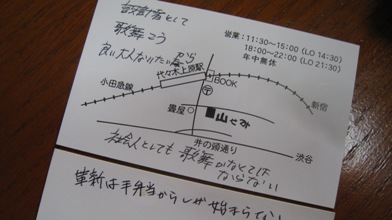 設計者として
歌舞こう
良い大人なりたいから
営業：11:30～15:00 (LO 14:30)
18:00～22:00 (LO 21:30)
年中無休
代々木上原駅
小田急線
BOOK
新宿
畳屋
山せみ
井の頭通り
渋谷
社会人としても歌舞かなくては
ならない
革新は手弁当からしか始まらない